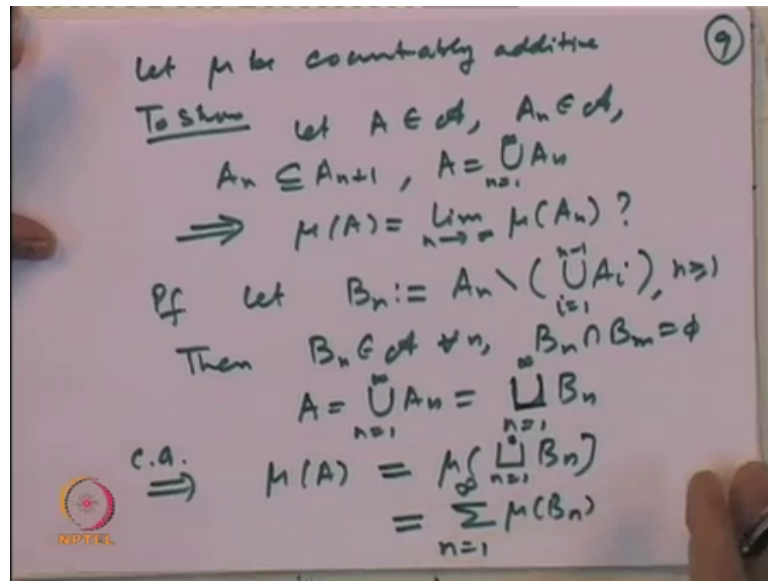 9
Let μ be countably additive
To show Let A ∈ 𝒜, Aₙ ∈ 𝒜,
Aₙ ⊆ Aₙ₊₁, A = ⋃_{n=1}^{∞} Aₙ
⟹ μ(A) = Lim_{n→∞} μ(Aₙ) ?
Pf Let Bₙ := Aₙ \ (⋃_{i=1}^{n-1} Aᵢ), n≥1
Then Bₙ ∈ 𝒜 ∀ n, Bₙ ∩ Bₘ = ϕ
A = ⋃_{n=1}^{∞} Aₙ = ⨆_{n=1}^{∞} Bₙ
c.a. ⟹ μ(A) = μ(⨆_{n=1}^{∞} Bₙ)
= ∑_{n=1}^{∞} μ(Bₙ)
NPTEL